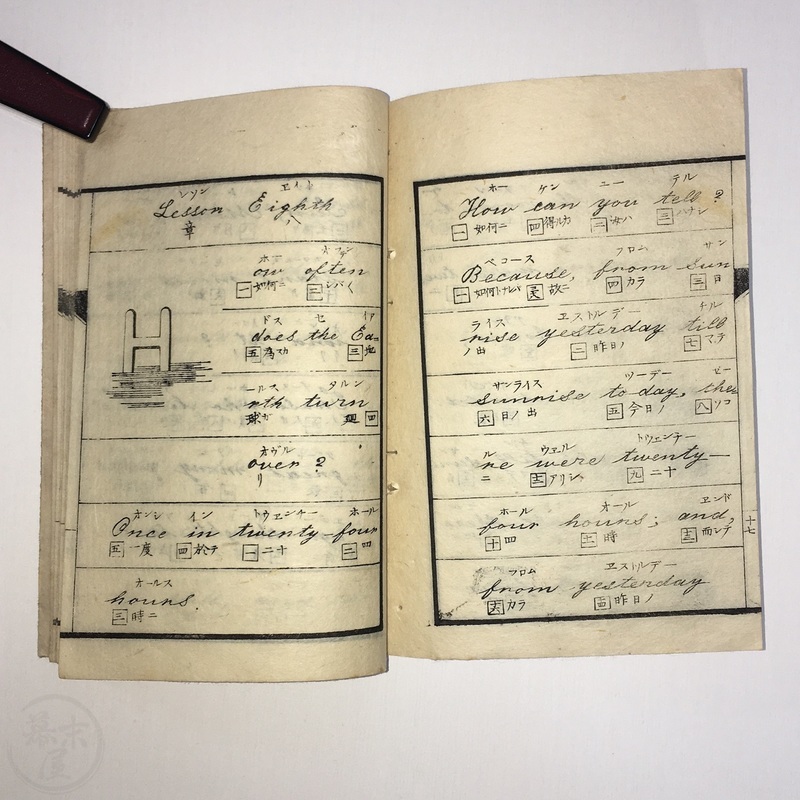 レソン エイト
Lesson Eighth
章 八
ホフ ヲフン
How often
一 如何ニ 二 シバく
ドス セ イア
does the Ea-
五 為スカ 三 地
ールス タルン
rth turn
球ガ 廻 四
オヴル
over ?
リ
オンシ イン トウェンチー ホール
Once in twenty-four
五 一度 四 於テ 一 二十 二 四
オールス
hours.
三 時ニ
ホー ケン ユー テル
How can you tell ?
一 如何ニ 四 得ルカ 二 汝ハ 三 ハナシ
ベコース フロム サン
Because, from sun
一 如何トナレバ 故ニ 四 カラ 三 日
ライス エストルデー チル
rise yesterday till
ノ出 二 昨日ノ 七 マデ
サンライス ツーデー ゼー
sunrise to day, the-
六 日ノ出 五 今日ノ 八 ソコ
ル ウェル トウェンチー
re were twenty-
ニ 十二 アリシ 九 二十
ホール オール エンド
four hours; and,
十 四 十一 時 十三 而シテ
フロム エストルデー
from yesterday
カラ 十四 昨日ノ
十七
幕末屋